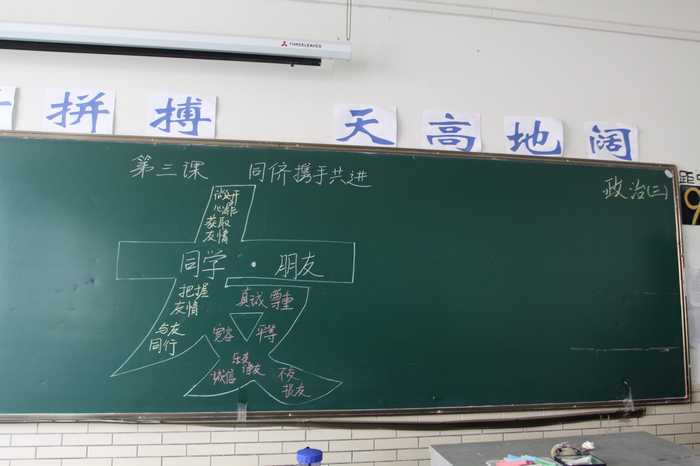 THREELEAVES
拼搏 天高地阔
第三课 同侪携手共进
政治(二)
距中
9
敞开
心扉
获取
友情
同学·朋友
把握
友情
与友
同行
真诚 尊重
宽容 平等
诚信 待友
不交
损友